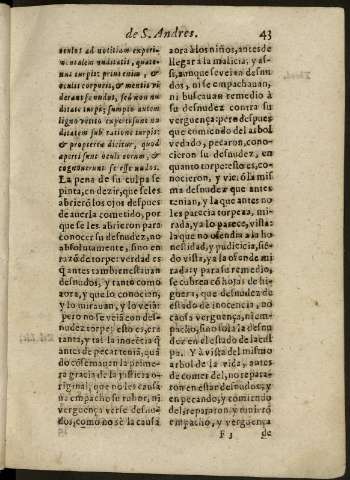 de S. Andres.
43
oculos ad notitiam experi-
mentalem nuditatis, quate-
nus turpis: primi enim, &
oculis corporis, & mentis vi-
derant se nudos, sed non nu-
ditate turpi; sumpto autem
ligno vetito experti sunt nu
ditatem sub ratione turpis:
& propterea dicitur, quod
aperti sunt oculi eorum, &
cognouerunt se esse nudos.
La pena de su culpa se
pinta, en dezir, que se les
abrierō los ojos despues
de auerla cometido, por
que se les abrieron para
conocer su desnudez, no
absolutamente, sino en
razō de torpe: verdad es
q̄ antes tambien estauan
desnudos, y tanto como
aora, y que lo conocian,
y lo mirauan, y lo veiā:
pero no se veiā con des-
nudez torpe; esto es, era
tanta, y tal la inocēcia q̄
antes de pecar tenia, quā
do cōseruauan la prime-
ra gracia de la justicia o-
riginal; que no les causa
ua empacho su rubor, ni
verguença verse desnu-
dos, como no se la causa
aora à los niños, antes de
llegar à la malicia; y as-
si, aunque se veian desnu
dos, ni se empachauan,
ni buscauan remedio à
su desnudez contra su
verguença: pero despues
que comiendo del arbol
vedado, pecaron, cono-
cieron su desnudez, en
quanto torpe: esto es, co-
nocieron, y vierō la mis
ma desnudez que antes
tenian, y la que antes no
les parecia torpeza, mi-
rada, ya lo parece, vista:
la que no ofendia a la ho
nestidad, y pudicicia, siē-
do vista, ya la ofende mi
rada: y para su remedio,
se cubren cō hojas de hi-
guera, que desnudez de
estado de inocencia, no
causa verguença, ni em-
pacho, sino sola la desnu
dez en el estado de la cul
pa. Y à vista del mismo
arbol de la vida, antes
de comer del, no repara-
ron en estar desnudos; y
en pecando, y comiendo
del, repararon, y miró
empacho, y verguença
F 3
de